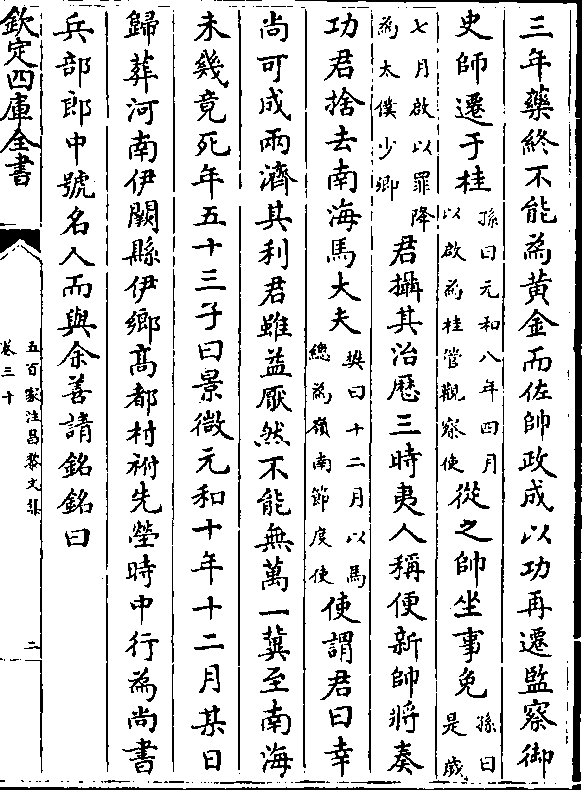 三年藥終不能為黃金而佐帥政成以功再遷監察御
史帥遷于桂
孫曰元和八年四月
以啟為桂管觀察使
從之帥坐事免
孫曰
是歲
七月啟以罪降
為太僕少卿
君攝其治歷三時夷人稱便新帥將奏
功君捨去南海馬大夫
樊曰十二月以馬
總為嶺南節度使
使謂君曰幸
尚可成兩濟其利君雖益厭然不能無萬一冀至南海
未幾竟死年五十三子曰景微元和十年十二月某日
歸葬河南伊闕縣伊鄉高都村祔先塋時中行為尚書
兵部郎中號名人而與余善請銘銘曰
欽定四庫全書
五百家注昌黎文集
卷三十
二